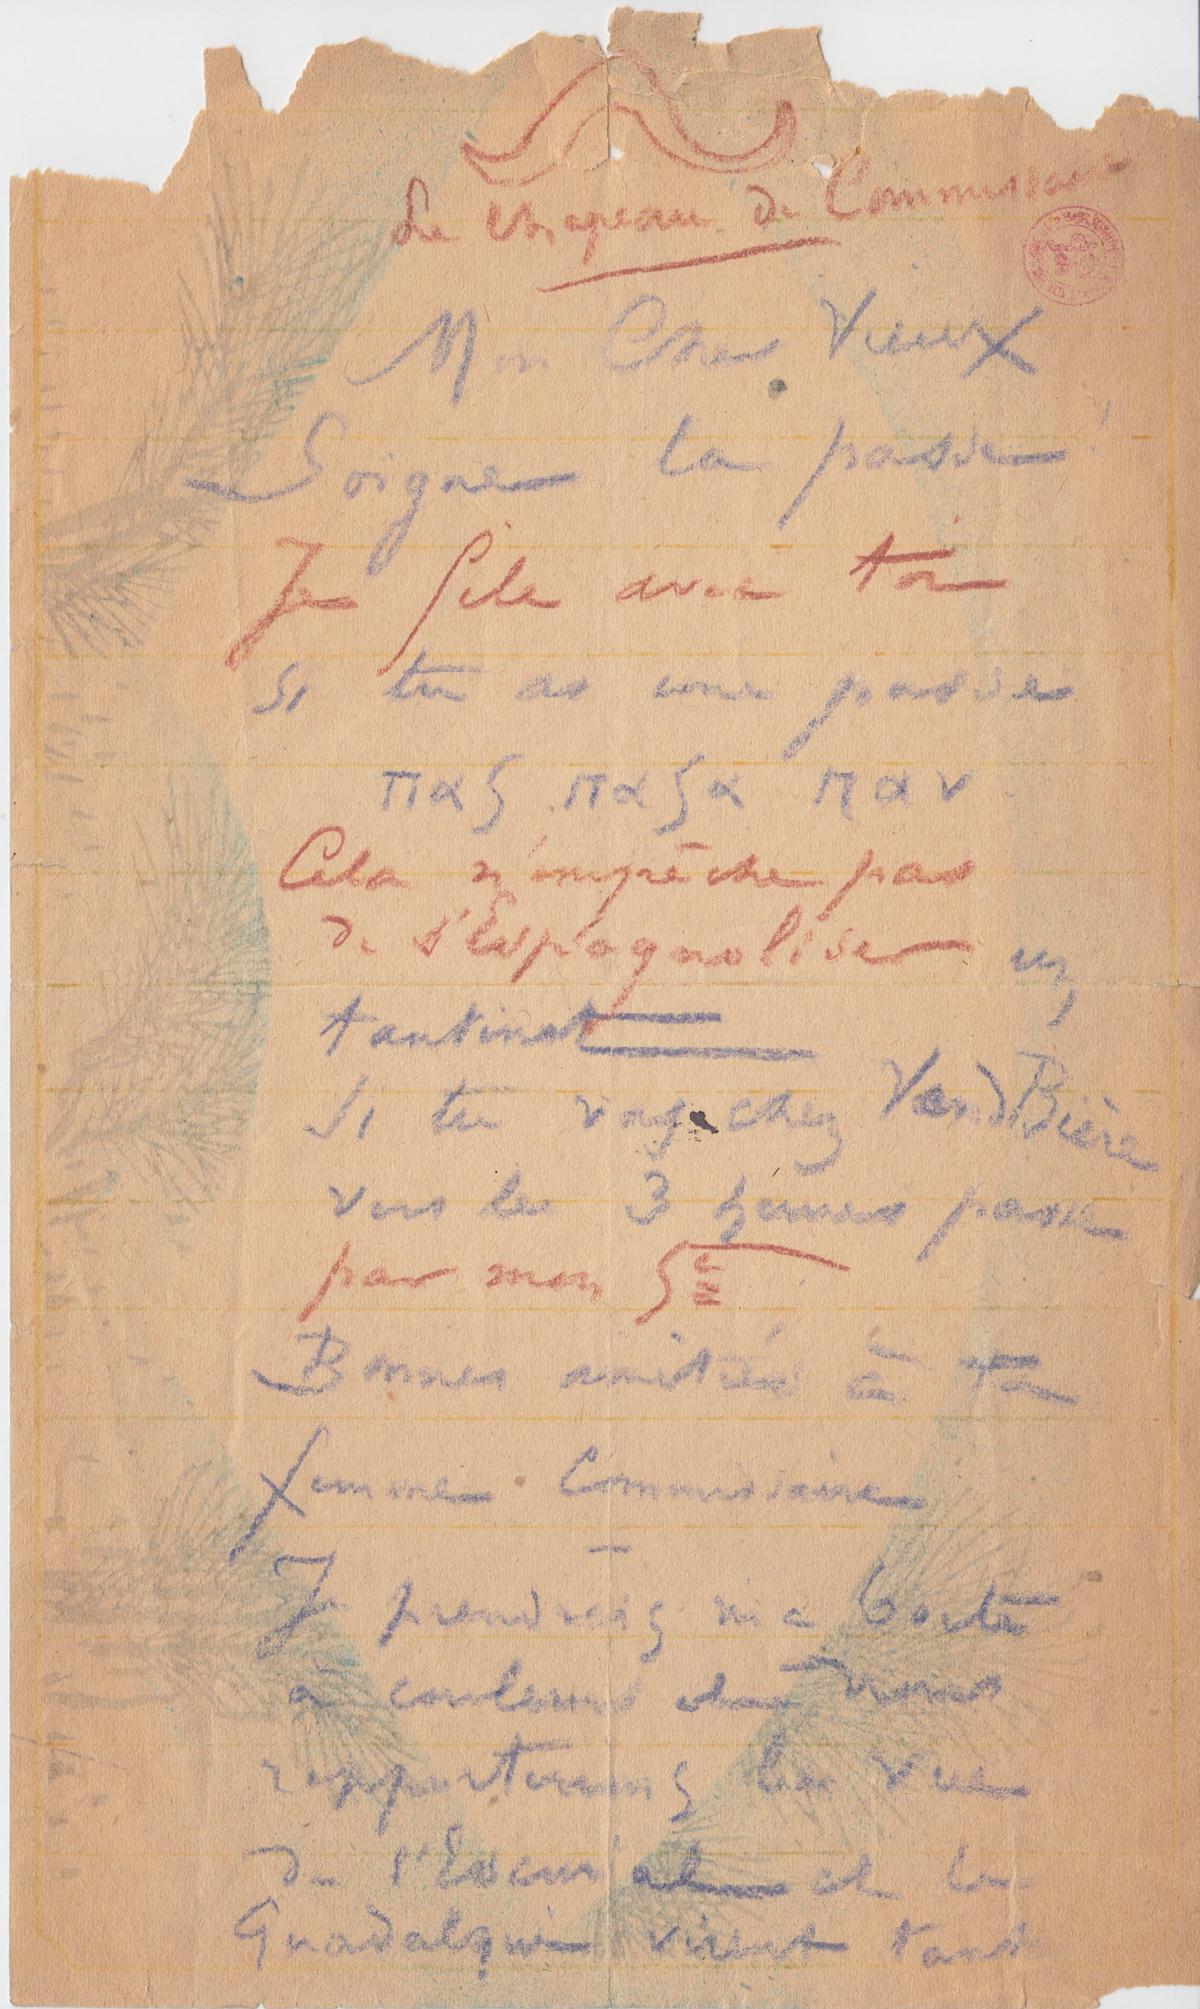 Le chapeau de Commissaire
Mon Cher Vieux
Soigne la passe !
Je file avec toi
Si tu as une passe
πας παςα παν
Cela n'empêche pas
de s'Espagnoliser un
tantinet
Si tu vas chez Vend Bière
vers les 3 heures passe
par mon
Bonnes amitiés à ta
femme Commissaire
—
Je prendrais ma boite
à couleurs et nous
rapporterons la vue
de l'Escurial et le
Guadalquivir tant